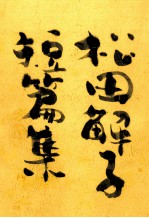 松田解子
短篇集